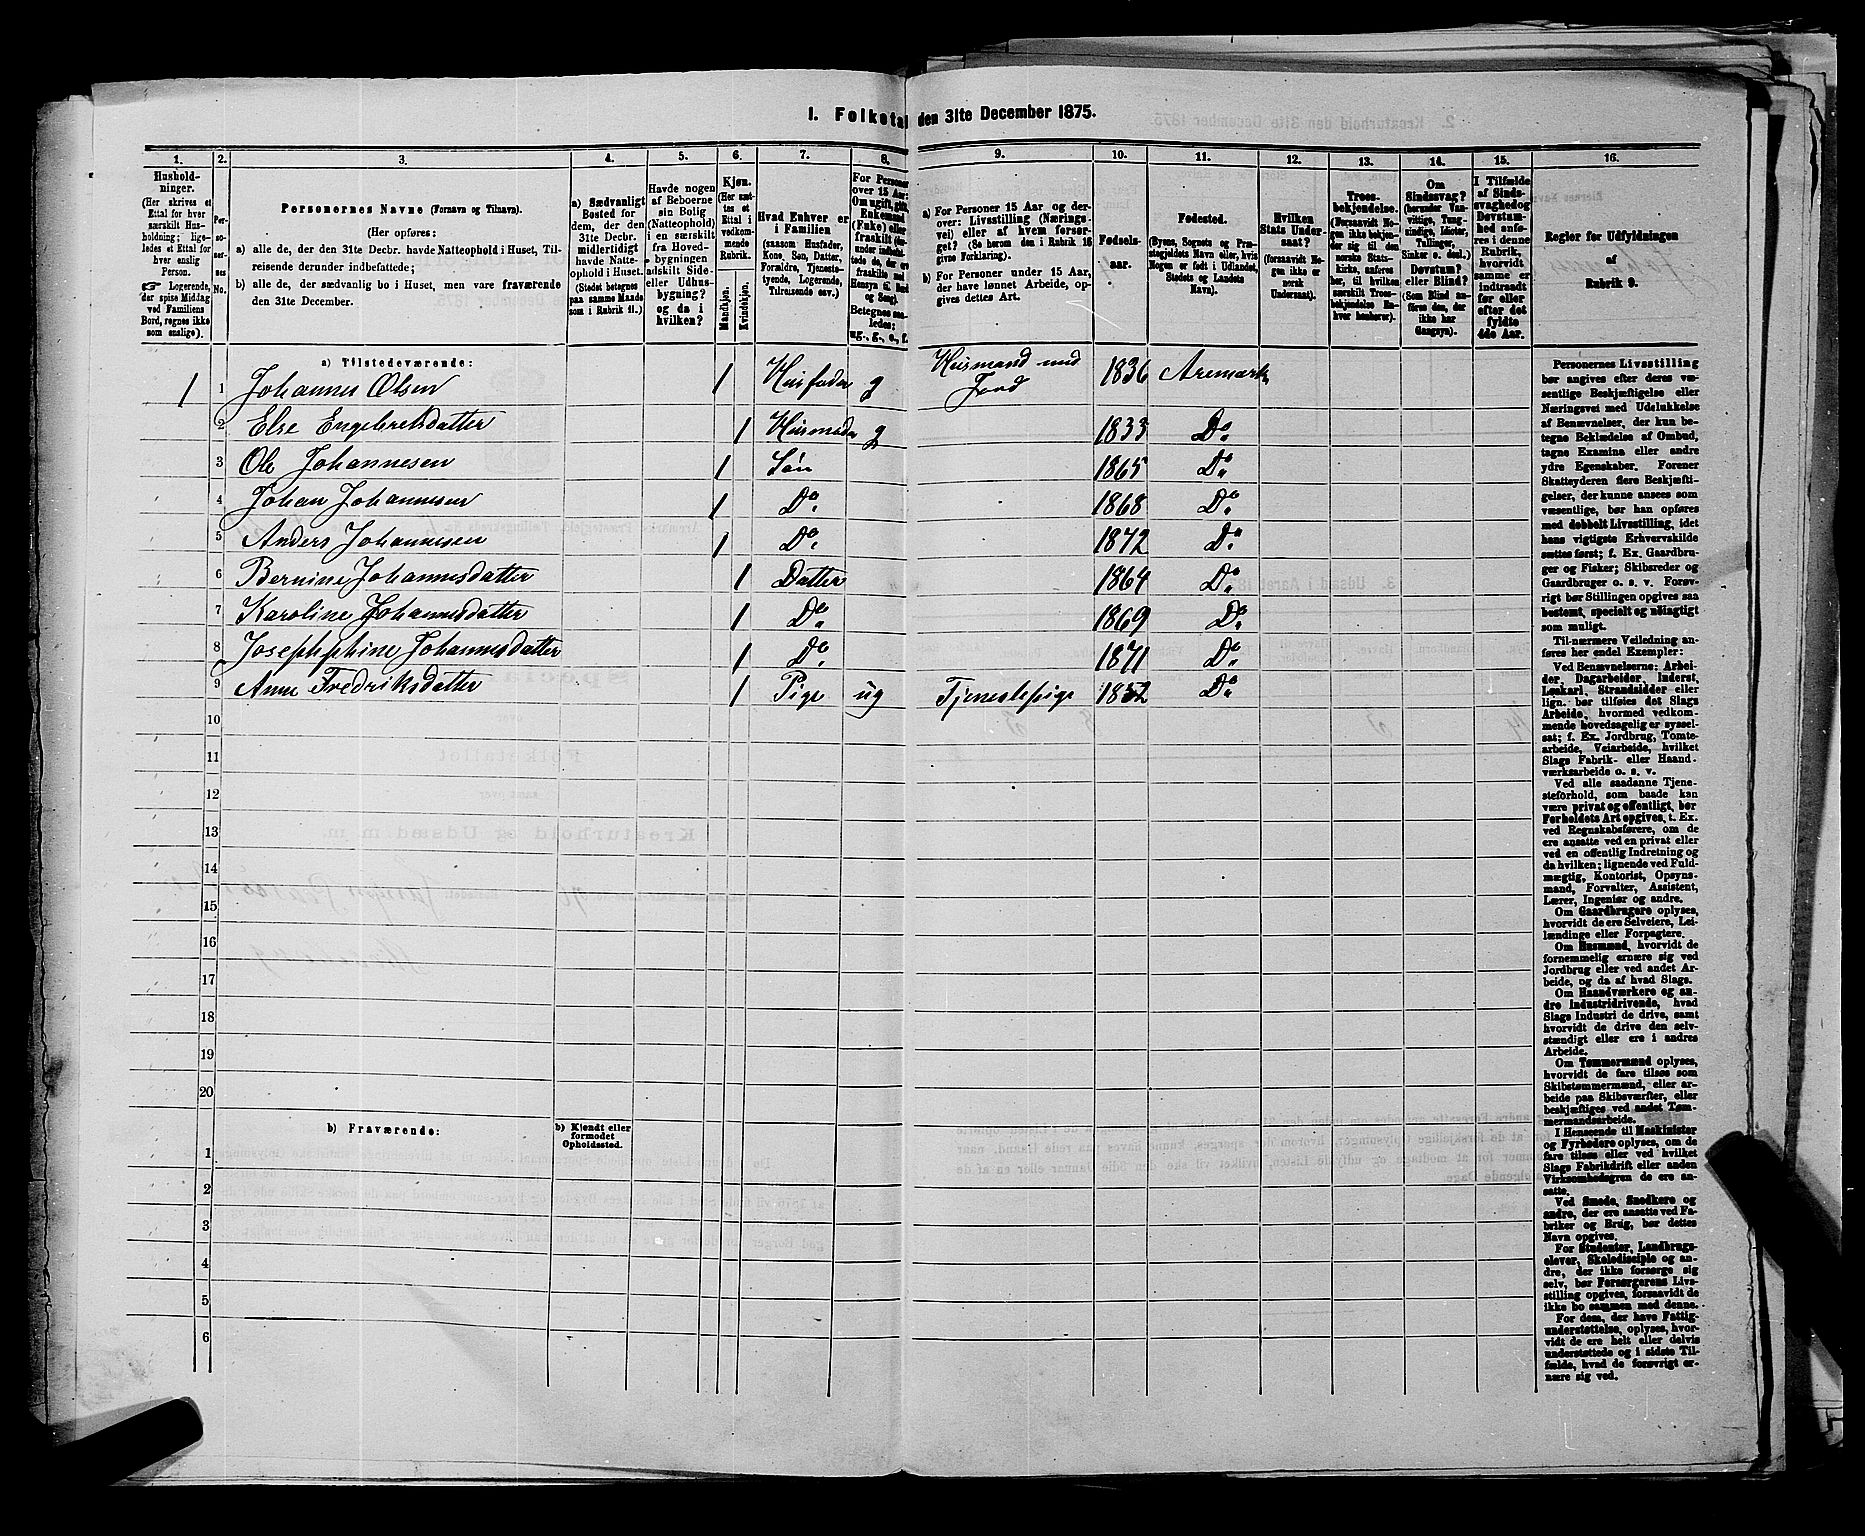 1. Folketal den 31te December 1875.
1. 2. 3. 4. 5. 6. 7. 8. 9. 10. 11. 12. 13. 14. 15. 16.
Hushold-
ninger.
(Her skrives et
Ettal for hver
særskilt Hus-
holdning; lige-
ledes et Ettal for
hver enslig
Person.
Logerende,
der spise Middag
ved Familiens
Bord, regnes ikke
som enslige).
Per-
so-
ner-
nes
No.
Personernes Navne (Fornavn og Tilnavn).
(Her opføres:
a) alle de, der den 31te Decbr. havde Natteophold i Huset, Til-
reisende derunder indbefattede;
b) alle de, der sædvanlig bo i Huset, men vare fraværende
den 31te December.
a) Sædvanligt
Bosted for
dem, der den
31te Decbr.
midlertidigt
havde Natte-
ophold i Huset.
(Stedet betegnes
paa samme Maade
som i Rubrik 11.)
Havde nogen
af Beboerne
sin Bolig
(Natteophold)
i en særskilt
fra Hoved-
bygningen
adskilt Side-
eller Udhus-
bygning?
og da i
hvilken?
Kjøn.
(Her sæt-
tes et
Ettal i
vedkom-
mende
Rubrik.
Mandkjøn.
Kvindekjøn.
Hvad Enhver er
i Familien
(saasom Husfader,
Kone, Søn, Datter,
Forældre, Tjeneste-
tyende, Logerende,
Tilreisende osv.)
For Personer
over 15 Aar:
Om ugift, gift,
Enkemand
(Enke) eller
fraskilt
Betegnes saa-
ledes;
ug., g., e., f.
a) For Personer 15 Aar og der-
over: Livsstilling (Nærings-
vei) eller af hvem forsør-
get? (Se herom den i Rubrik 16
givne Forklaring).
b) For Personer under 15 Aar,
der have lønnet Arbeide, op-
gives dettes Art.
Fødsels-
aar.
Fødested.
(Byens, Sognets og Præ-
stegjeldets Navn eller, hvis
Nogen er født i Udlandet,
Stedets og Landets
Navn).
Hvilken
Stats Under-
saat?
(forsaavidt No-
gen ikke er
norsk
Undersaat).
Troes-
bekjendelse.
(Forsaavidt No-
gen ikke bekjen-
der sig til den
norske Stats-
kirke, anføres
her, til hvilken
særskilt Troes-
bekjendelse En-
hver henhører).
Om
Sindssvag?
(herunder Van-
vittige, Tung-
sindige, Idioter,
Tullinger,
Sinker o. desl.)
Døvstum?
eller Blind?
(Som Blind an-
føres den, der
ikke har
Gangsyn).
I Tilfælde
af Sinds-
svaghed og
Døvstum-
hed anfø-
res i denne
Rubrik,
hvorvidt
samme er
indtraadt
før eller
efter det
fyldte
4de Aar.
Regler for Udfyldningen
af
Rubrik 9.
a) Tilstedeværende:
1 1 Johannes Olsen 1 Husfader g Husmand med Jord 1836 Aremark
2 Else Engebretsdatter 1 Husmoder g 1833 Do
3 Ole Johannesen 1 Søn 1865 Do
4 Johan Johannesen 1 Do 1868 Do
5 Anders Johannesen 1 Do 1872 Do
6 Bernine Johannesdatter 1 Datter 1864 Do
7 Karoline Johannesdatter 1 Do 1869 Do
8 Josephphine Johannesdatter 1 Do 1871 Do
9 Anne Fredriksdatter 1 Pige ug Tjenestepige 1852 Do
10
11
12
13
14
15
16
17
18
19
20
b) Fraværende:
b) Kjendt eller
formodet
Opholdssted.
1
2
3
4
5
6
Personernes Livsstilling
bør angives efter deres væ-
sentlige Beskjæftigelse eller
Næringsvei med Udelukkelse
af Benævnelser, der kun be-
tegne Beklædelse af Ombud,
tagne Examina eller andre
ydre Egenskaber. Forener
Skatteyderen flere Beskjæfti-
gelser, der kunne ansees som
væsentlige, bør han opføres
med dobbelt Livsstilling, idet
hans vigtigste Erhvervskilde
sættes først; f. Ex. Gaardbru-
ger og Fisker; Skibsreder og
Gaardbruger o. s. v. Forøv-
rigt bør Stillingen opgives saa
bestemt, specielt og nøiagtigt
som muligt.
Til nærmere Veiledning an-
føres her endel Exempler:
Ved Benævnelserne: Arbei-
der, Dagarbeider, Inderst,
Løskarl, Strandsidder eller
lign. bør tilføies det Slags
Arbeide, hvormed vedkom-
mende hovedsagelig er syssel-
sat; f. Ex. Jordbrug, Tomte-
arbeide, Veiarbeide, hvilket
Slags Fabrik- eller Haand-
værksarbeide o. s. v.
Ved alle saadanne Tjene-
steforhold, som baade kan
være privat og offentligt, bør
Forholdets Art opgives, t. Ex.
ved Regnskabsførere, om de
ere ansatte ved en privat eller
ved en offentlig Indretning og
da hvilken; lignende ved Fuld-
mægtig, Kontorist, Opsyns-
mand, Forvalter, Assistent,
Lærer, Ingeniør og andre.
Om Gaardbrugere oplyses,
hvorvidt de ere Selveiere, Lei-
lændinge eller Forpagtere.
Om Husmænd, hvorvidt de
fornemmelig ernære sig ved
Jordbrug eller ved andet Ar-
beide, og da af hvad Slags.
Om Haandværkere og an-
dre Industridrivende, hvad
Slags Industri de drive, samt
hvorvidt de drive den selv-
stændigt eller ere i andres
Arbeide.
Om Tømmermænd oplyses,
hvorvidt de fare tilsøs som
Skibstømmermænd, eller ar-
beide paa Skibsværfter, eller
beskjæftiges ved andet Tøm-
mermandsarbeide.
I Henseende til Maskinister
og Fyrbødere oplyses, om de
fare tilsøs eller ved hvilket
Slags Fabrikdrift eller anden
Virksomhedsgren de ere an-
satte.
Ved Smede, Snedkere og
andre, der ere ansatte ved Fa-
briker og Brug, bør dettes
Navn opgives.
For Studenter, Landbrugs-
elever, Skoledisciple og an-
dre, der ikke forsørge sig
selv, bør Forsørgerens Livs-
stilling opgives, forsaavidt de
ikke bo sammen med denne.
For dem, der have Fattig-
understøttelse, oplyses, hvor-
vidt de ere helt eller delvis
understøttede og i sidste Til-
fælde, hvad de forøvrigt er-
nære sig ved.